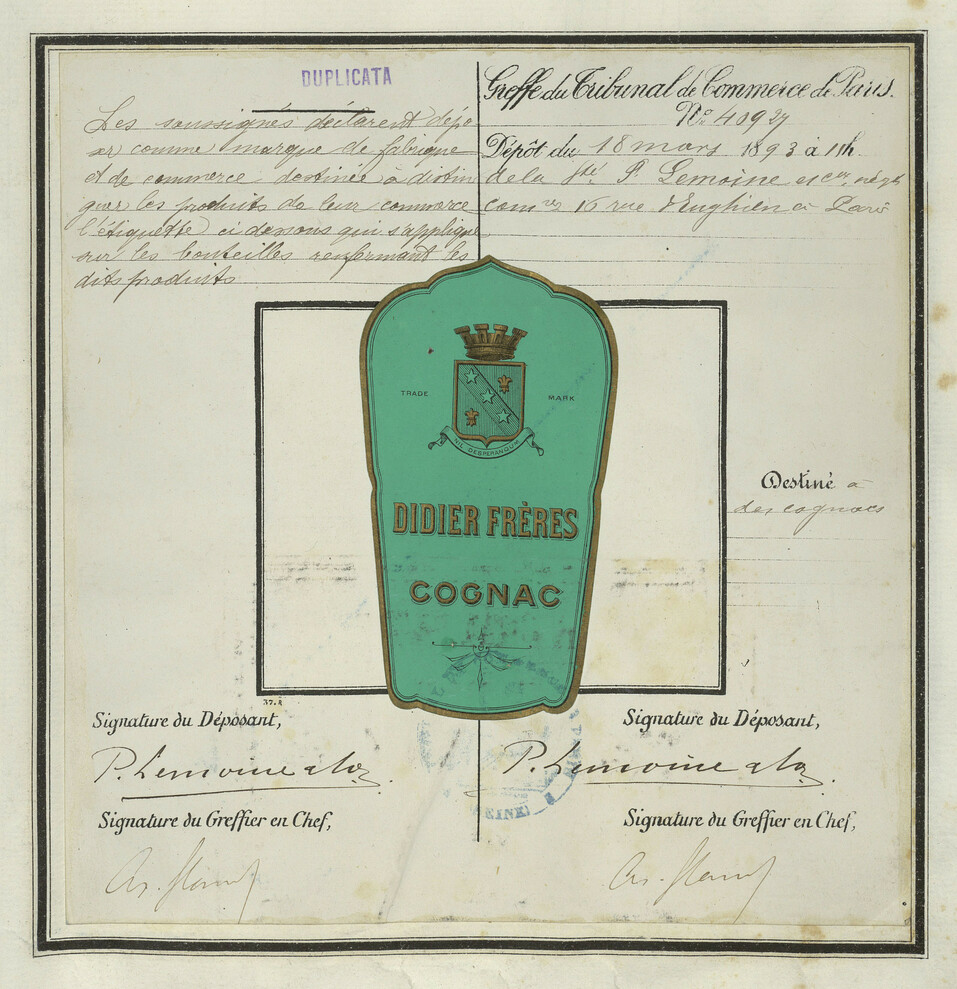 DUPLICATA
Les soussignés déclarent dépo
ser comme marque de fabrique
et de commerce destinée à distin
guer les produits de leur commerce
l'étiquette ci dessous qui s'applique
sur les bouteilles renfermant les
dits produits
Greffe du Tribunal de Commerce de Paris.
No 40927
Dépôt du 18 mars 1893 à 11h
de la Sté P. Lemoine et Cie, négts
16 rue d'Enghien à Paris
TRADE MARK
NIL DESPERANDUM
DIDIER FRÈRES
COGNAC
Destiné à
des cognacs
37.4
Signature du Déposant,
P. Lemoine & Co
Signature du Greffier en Chef,
Signature du Déposant,
P. Lemoine & Co
SEINE
Signature du Greffier en Chef,